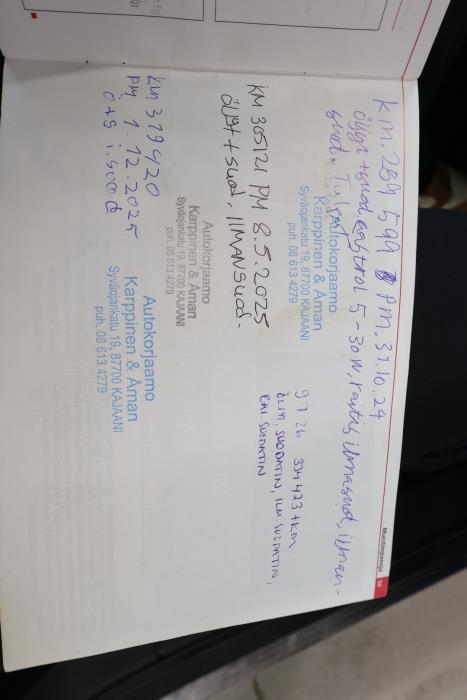 Muistiinpanoja 39
km. 289 599 PM. 31.10.24
öljyt + suod. castrol 5-30W, raitis ilmasuod, ilman-
suod. Tulpat
Autokorjaamo
Karppinen & Äman
Syväojankatu 19, 87700 KAJAANI
puh. 08 613 4279
KM 305121 PM 8.5.2025
öljyt + suod, ILMANSUOD.
Autokorjaamo
Karppinen & Äman
Syväojankatu 19, 87700 KAJAANI
puh. 08 613 4279
KM 319420
PM 1.12.2025
ö+s i.suod
Autokorjaamo
Karppinen & Äman
Syväojankatu 19, 87700 KAJAANI
puh. 08 613 4279
9 7 26 334423+km
ÖLJYT, SUODATIN, ILM SUODATIN,
RAI. SUODATIN